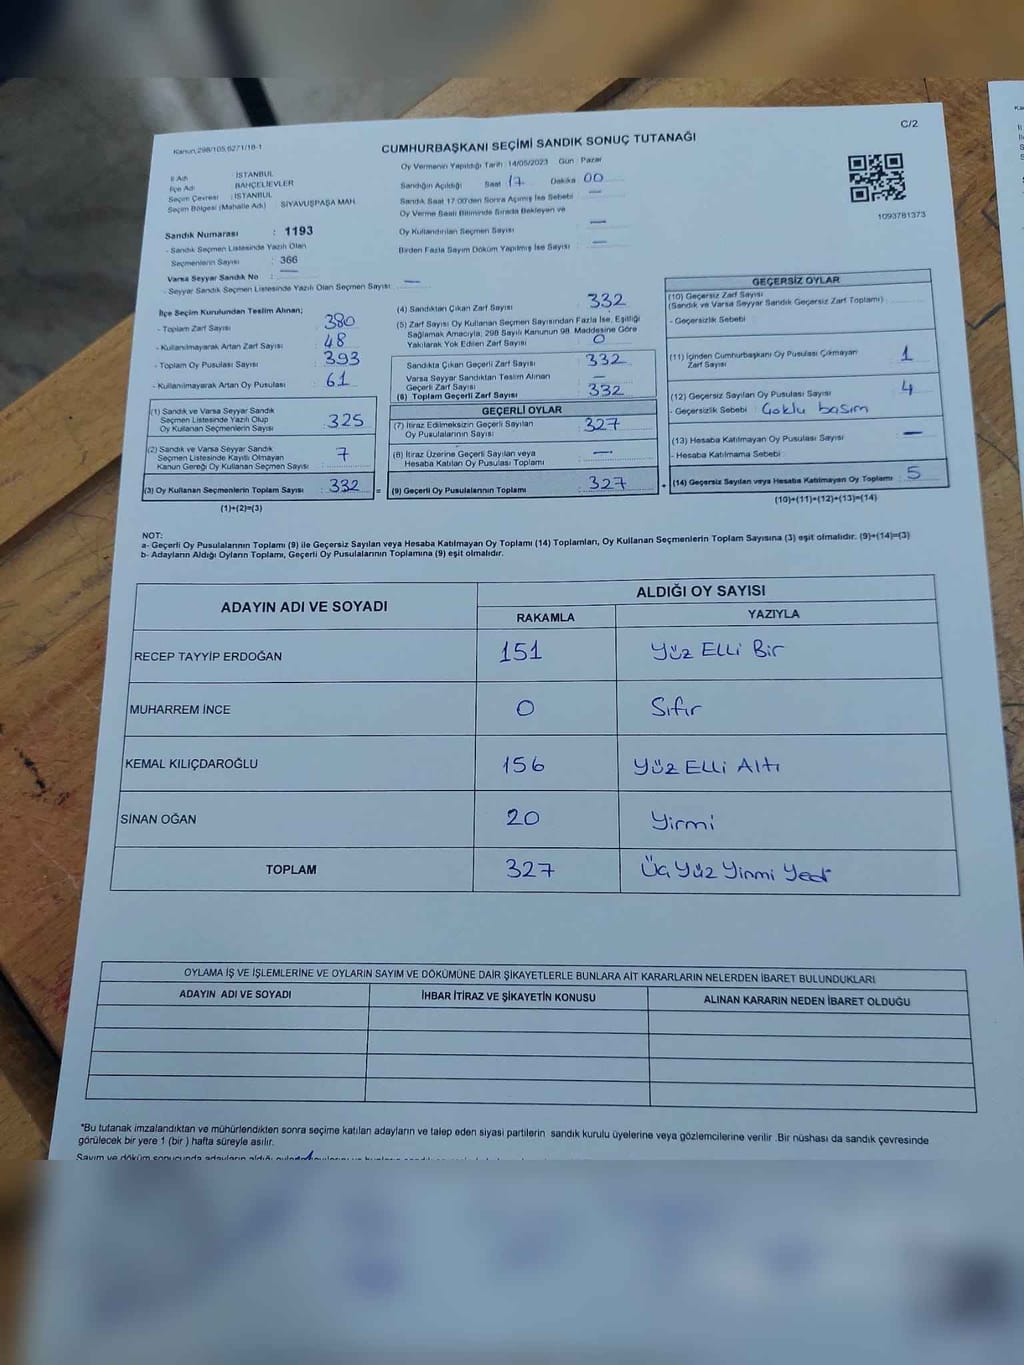 C/2
Kanun,298/105,6271/18-1
CUMHURBAŞKANI SEÇİMİ SANDIK SONUÇ TUTANAĞI
İl Adı : İSTANBUL
İlçe Adı : BAHÇELİEVLER
Seçim Çevresi : İSTANBUL
Seçim Bölgesi (Mahalle Adı) SİYAVUŞPAŞA MAH.
Sandık Numarası : 1193
- Sandık Seçmen Listesinde Yazılı Olan
Seçmenlerin Sayısı : 366
Varsa Seyyar Sandık No : —
- Seyyar Sandık Seçmen Listesinde Yazılı Olan Seçmen Sayısı: —
Oy Vermenin Yapıldığı Tarih :14/05/2023 Gün Pazar
Sandığın Açıldığı Saat 17 Dakika 00
Sandık Saat 17:00'den Sonra Açılmış İse Sebebi —
Oy Verme Saati Bitiminde Sırada Bekleyen ve
Oy Kullandırılan Seçmen Sayısı —
Birden Fazla Sayım Döküm Yapılmış İse Sayısı —
1093781373
İlçe Seçim Kurulundan Teslim Alınan;
- Toplam Zarf Sayısı 380
- Kullanılmayarak Artan Zarf Sayısı 48
- Toplam Oy Pusulası Sayısı 393
- Kullanılmayarak Artan Oy Pusulası 61
(1) Sandık ve Varsa Seyyar Sandık
Seçmen Listesinde Yazılı Olup
Oy Kullanan Seçmenlerin Sayısı 325
(2) Sandık ve Varsa Seyyar Sandık
Seçmen Listesinde Kayıtlı Olmayan
Kanun Gereği Oy Kullanan Seçmen Sayısı 7
(3) Oy Kullanan Seçmenlerin Toplam Sayısı 332 =
(1)+(2)=(3)
(4) Sandıktan Çıkan Zarf Sayısı 332
(5) Zarf Sayısı Oy Kullanan Seçmen Sayısından Fazla İse, Eşitliği
Sağlamak Amacıyla, 298 Sayılı Kanunun 98. Maddesine Göre
Yakılarak Yok Edilen Zarf Sayısı 0
Sandıkta Çıkan Geçerli Zarf Sayısı 332
Varsa Seyyar Sandıktan Teslim Alınan
Geçerli Zarf Sayısı —
(6) Toplam Geçerli Zarf Sayısı 332
GEÇERLİ OYLAR
(7) İtiraz Edilmeksizin Geçerli Sayılan
Oy Pusulalarının Sayısı 327
(8) İtiraz Üzerine Geçerli Sayılan veya
Hesaba Katılan Oy Pusulası Toplamı —
(9) Geçerli Oy Pusulalarının Toplamı 327 +
GEÇERSİZ OYLAR
(10) Geçersiz Zarf Sayısı
(Sandık ve Varsa Seyyar Sandık Geçersiz Zarf Toplamı)
- Geçersizlik Sebebi
(11) İçinden Cumhurbaşkanı Oy Pusulası Çıkmayan
Zarf Sayısı 1
(12) Geçersiz Sayılan Oy Pusulası Sayısı 4
- Geçersizlik Sebebi Çoklu basım
(13) Hesaba Katılmayan Oy Pusulası Sayısı —
- Hesaba Katılmama Sebebi
(14) Geçersiz Sayılan veya Hesaba Katılmayan Oy Toplamı 5
(10)+(11)+(12)+(13)=(14)
NOT:
a- Geçerli Oy Pusulalarının Toplamı (9) ile Geçersiz Sayılan veya Hesaba Katılmayan Oy Toplamı (14) Toplamları, Oy Kullanan Seçmenlerin Toplam Sayısına (3) eşit olmalıdır. (9)+(14)=(3)
b- Adayların Aldığı Oyların Toplamı, Geçerli Oy Pusulalarının Toplamına (9) eşit olmalıdır.
ADAYIN ADI VE SOYADI
ALDIĞI OY SAYISI
RAKAMLA YAZIYLA
RECEP TAYYİP ERDOĞAN 151 Yüz Elli Bir
MUHARREM İNCE 0 Sıfır
KEMAL KILIÇDAROĞLU 156 Yüz Elli Altı
SİNAN OĞAN 20 Yirmi
TOPLAM 327 Üç Yüz Yirmi Yedi
OYLAMA İŞ VE İŞLEMLERİNE VE OYLARIN SAYIM VE DÖKÜMÜNE DAİR ŞİKAYETLERLE BUNLARA AİT KARARLARIN NELERDEN İBARET BULUNDUKLARI
ADAYIN ADI VE SOYADI İHBAR İTİRAZ VE ŞİKAYETİN KONUSU ALINAN KARARIN NEDEN İBARET OLDUĞU
*Bu tutanak imzalandıktan ve mühürlendikten sonra seçime katılan adayların ve talep eden siyasi partilerin sandık kurulu üyelerine veya gözlemcilerine verilir .Bir nüshası da sandık çevresinde
görülecek bir yere 1 (bir ) hafta süreyle asılır.
Sayım ve döküm sonucunda adayların aldığı